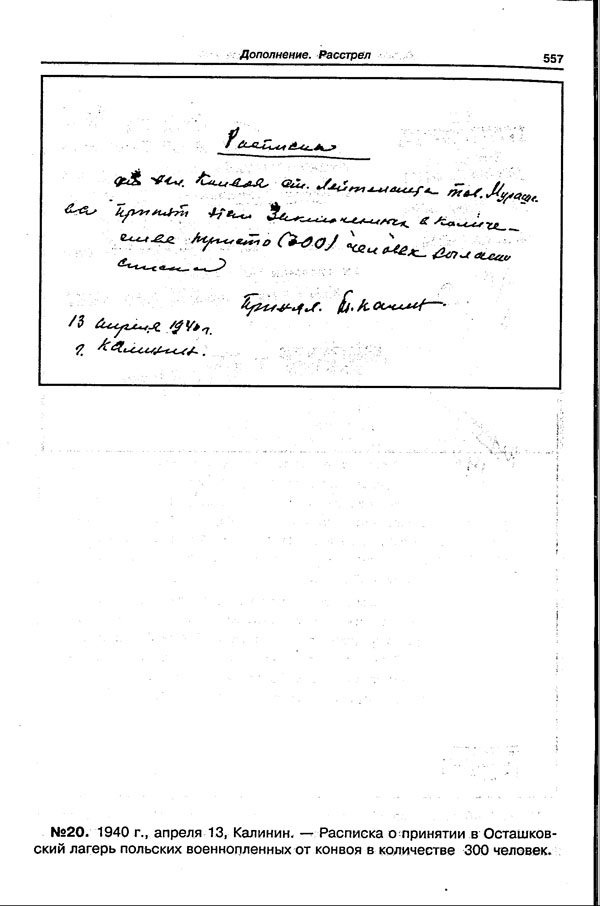 Дополнение. Расстрел 557
Расписка
от нач. Конвоя ст. лейтенанта тов. Мураше-
ва принят этап Заключенных в количе-
стве триста (300) человек согласно
списка
Принял.
13 апреля 1940 г.
г. Калинин.
№20. 1940 г., апреля 13, Калинин. — Расписка о принятии в Осташков-
ский лагерь польских военнопленных от конвоя в количестве 300 человек.